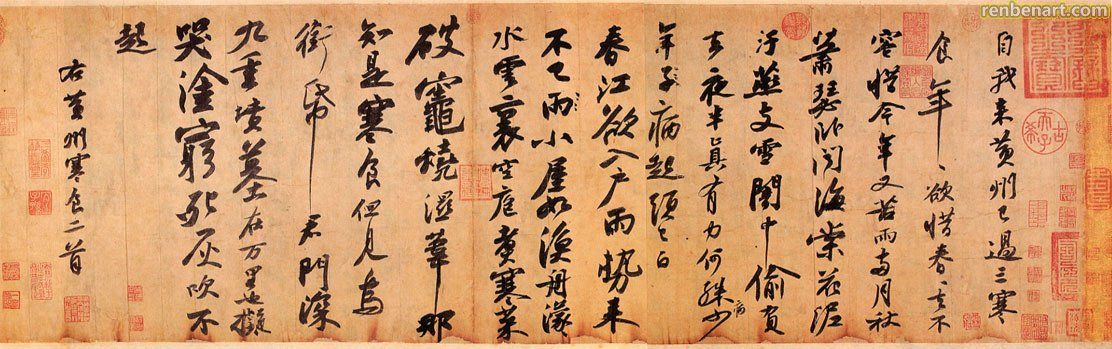 renbenart.com
自我来黄州已過三寒
食年〻欲惜春〻去不
容惜今年又苦雨兩月秋
蕭瑟卧聞海棠花泥
汙燕支雪闇中偷負
去夜半真有力何殊少
病
年子病起頭已白
春江欲入戶雨勢来
不已雨小屋如漁舟濛〻
水雲裏空庖煮寒菜
破竈燒濕葦那
知是寒食但見烏
銜帋君門深
九重墳墓在万里也擬
哭塗窮死灰吹不
起
右黄州寒食二首
古希天子